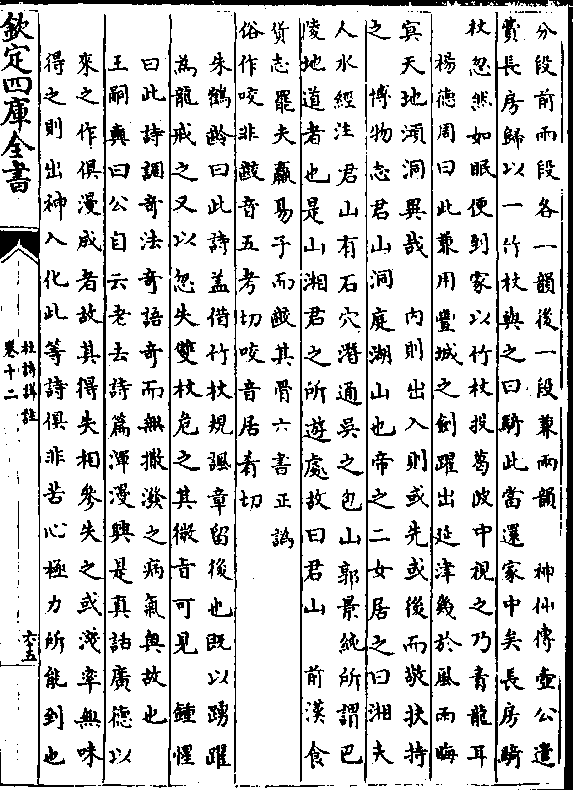 分段前兩段各一韻後一段兼兩韻　神仙傳壺公遣
費長房歸以一竹杖與之曰騎此當還家中矣長房騎
杖忽然如眠便到家以竹杖投葛陂中視之乃青龍耳
楊德周曰此兼用豐城之劍躍出延津幾於風雨晦
冥天地澒洞異哉　内則出入則或先或後而敬扶持
之　博物志君山洞庭湖山也帝之二女居之曰湘夫
人水經注君山有石穴潛通吳之包山郭景純所謂巴
陵地道者也是山湘君之所遊處故曰君山　前漢食
貨志罷夫羸易子而齩其骨六書正譌
俗作咬非齩音五考切咬音居肴切
朱鶴齡曰此詩蓋借竹杖規諷章留後也既以踴躍
為龍戒之又以忽失雙杖危之其微音可見　鍾惺
曰此詩調奇法奇語奇而無撒潑之病氣奥故也
王嗣奭曰公自云老去詩篇渾漫興是真話廣德以
來之作俱漫成者故其得失相參失之或淺率無味
得之則出神入化此等詩俱非苦心極力所能到也
欽定四庫全書
杜詩詳註
卷十二
六十五